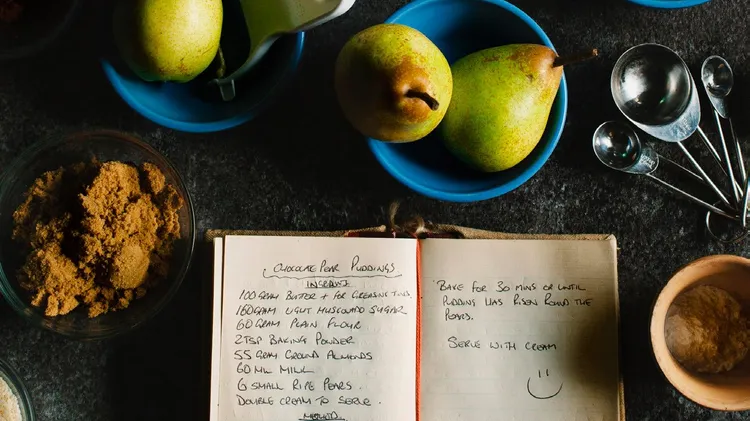 CHOCOLATE PEAR PUDDINGS
100GRAM BUTTER + FOR GREASING TINS.
160GRAM LIGHT MUSCOVADO SUGAR
60GRAM PLAIN FLOUR
2TSP BAKING POWDER
55 GRAM GROUND ALMONDS
60 ML MILK
6 SMALL RIPE PEARS.
DOUBLE CREAM TO SERVE.
BAKE FOR 30 MINS OR UNTIL
PUDDING HAS RISEN ROUND THE
PEARS.
SERVE WITH CREAM